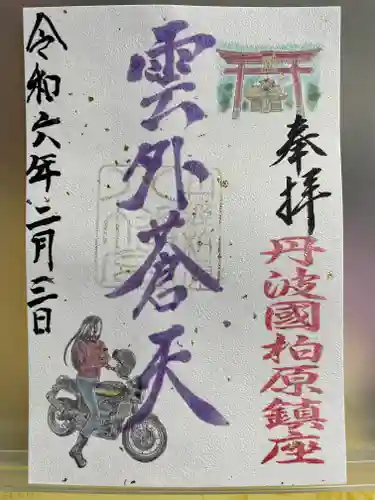 奉拝
丹波國柏原鎮座
雲外蒼天
令和六年二月三日